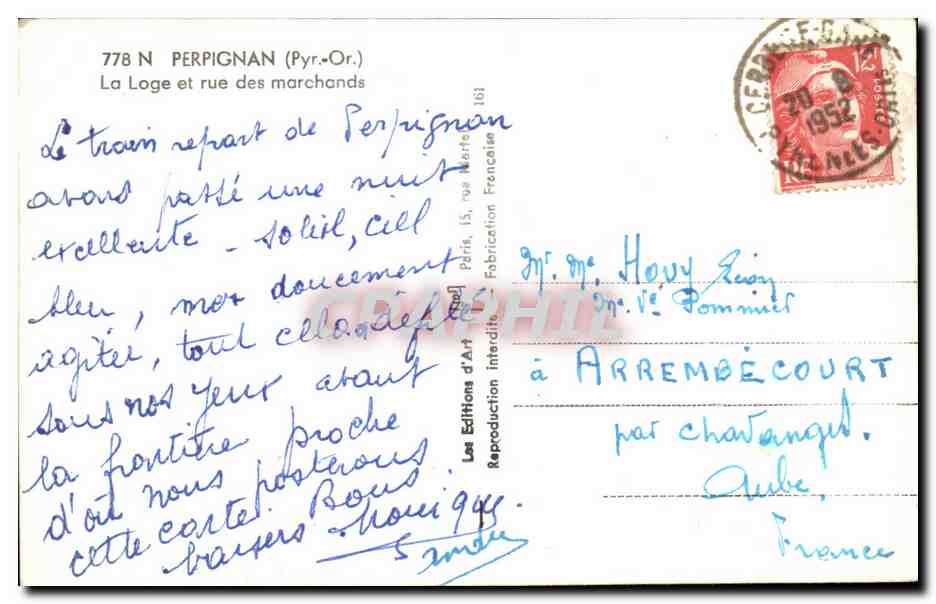 778 N PERPIGNAN (Pyr.-Or.)
La Loge et rue des marchands
Le train repart de Perpignan
avons passé une nuit
excellente - soleil, ciel
bleu, mer doucement
agitée, tout cela défile
sous nos yeux avant
la frontière proche
d'où nous posterons
cette carte. Bons
baisers
Les Editions d'Art Paris, 15, rue Martel
Reproduction interdite - Fabrication Française 161
CERBERE-GARE
20 8
1952
PYRENEES-ORIENTALES
12F
POSTES
Mr. Me HOUY Léon
Me Ve Pommier
à ARREMBÉCOURT
par Chavanges.
Aube,
France
CRAPHIL